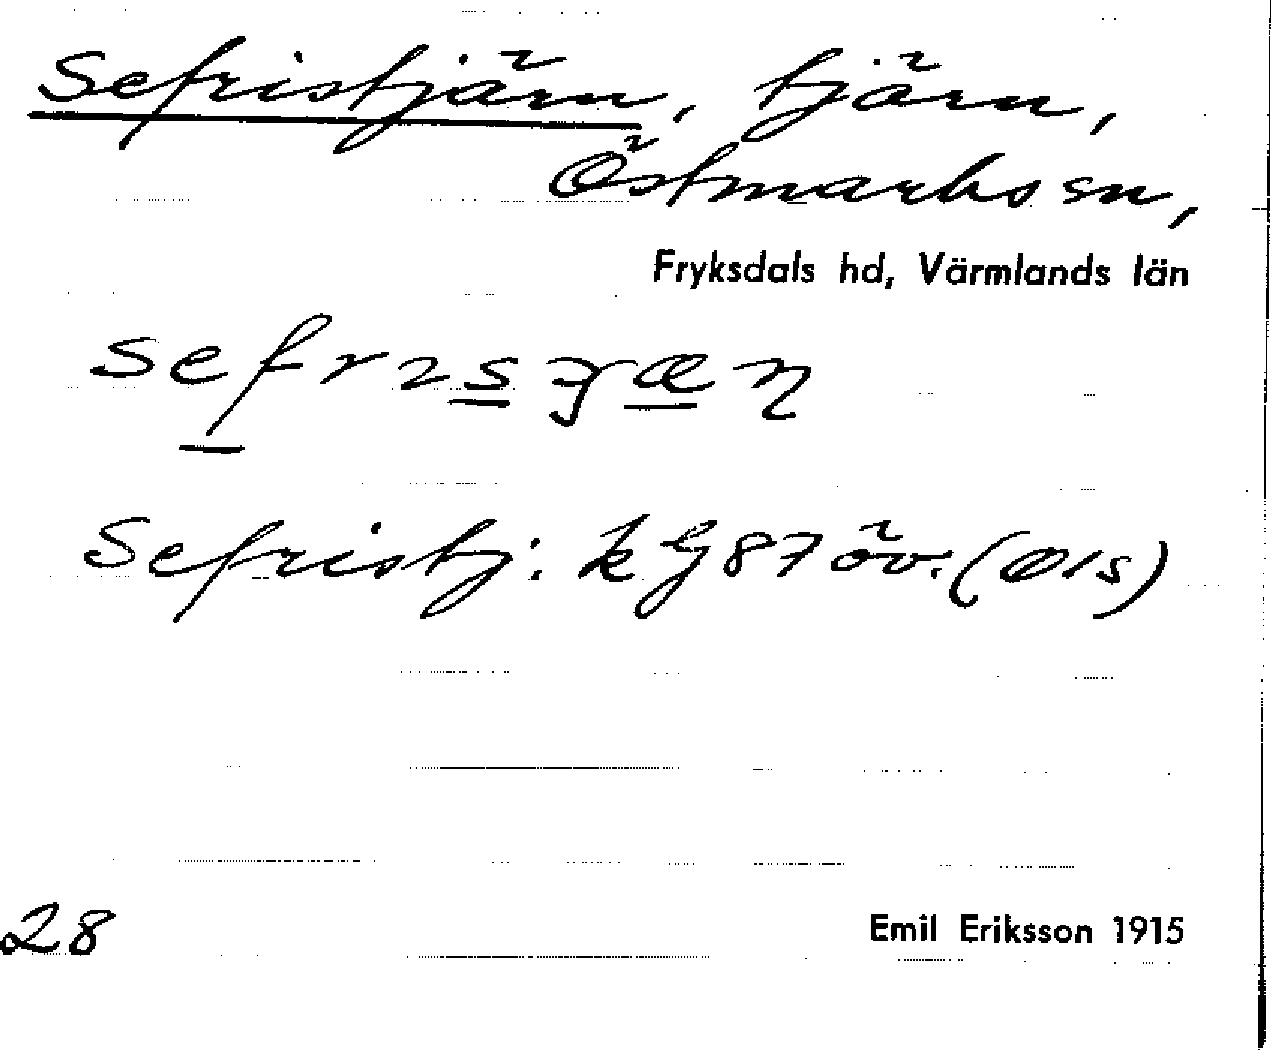 Sefristjärn, tjärn,
Östmarks sn,
Fryksdals hd, Värmlands län
Sefristj: kG87 öv. (OIS)
28
Emil Eriksson 1915